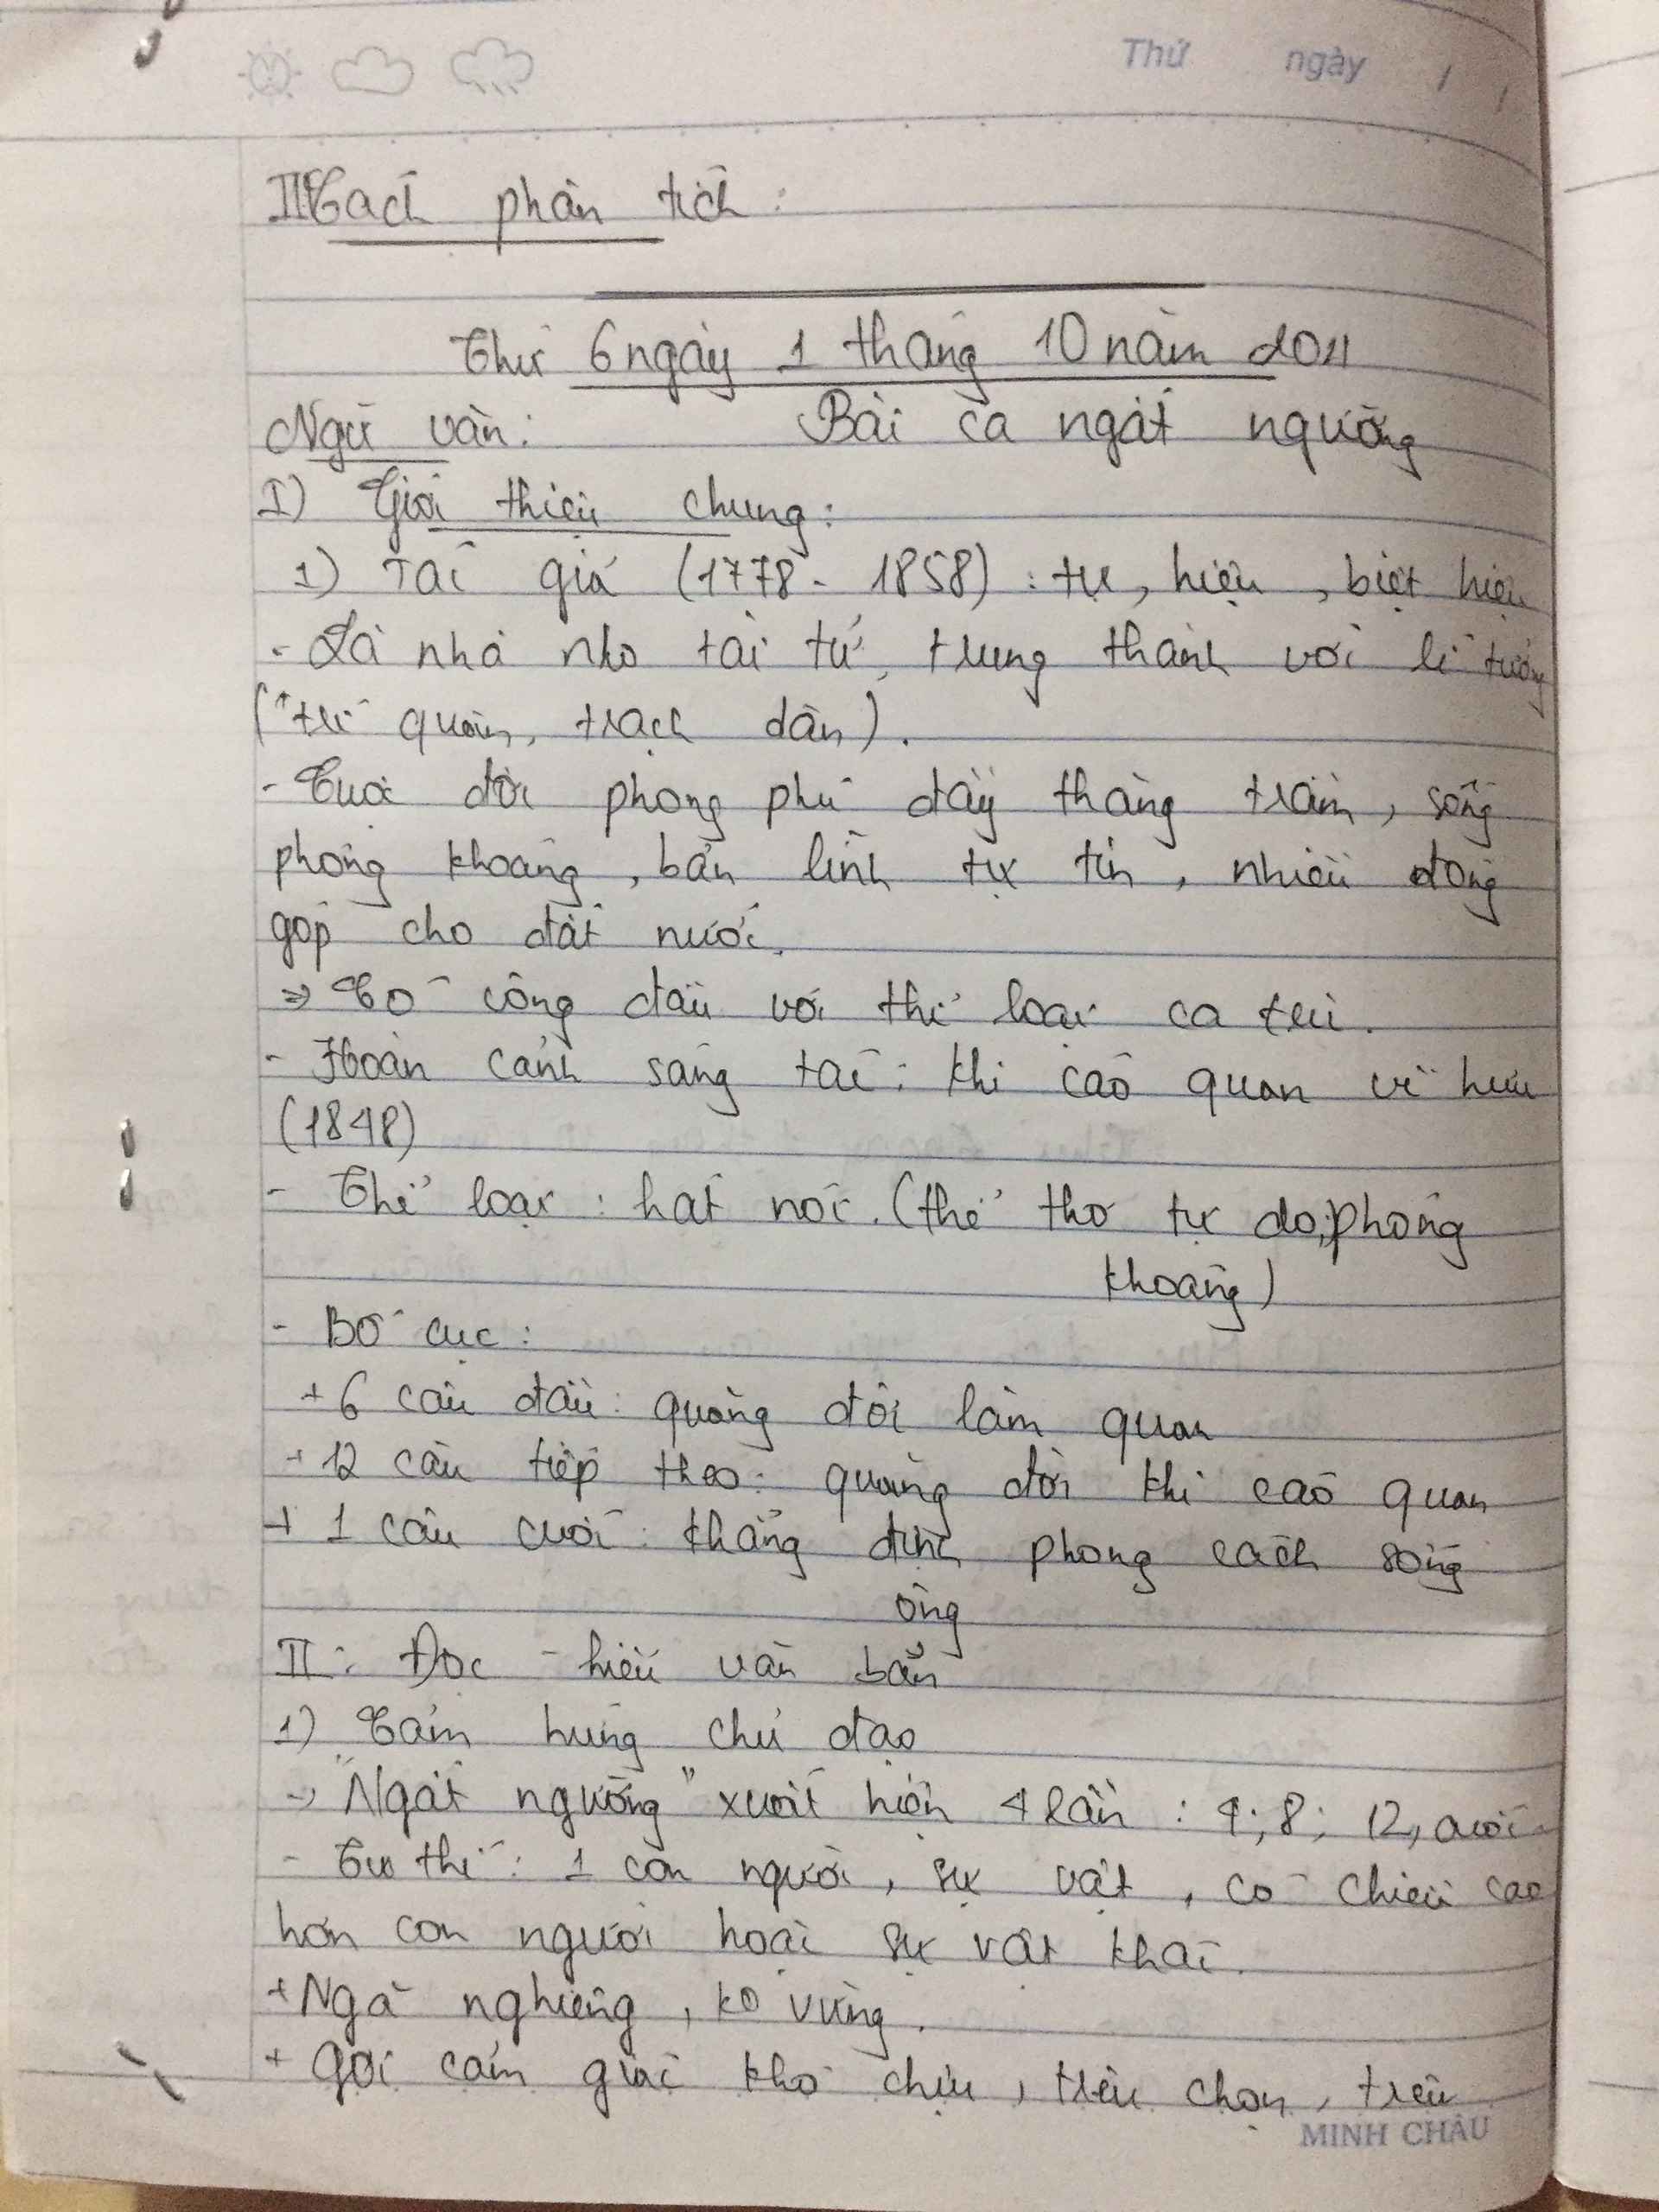 Thứ ngày / /
III Cách phân tích :
Thứ 6 ngày 1 tháng 10 năm 2011
Ngữ văn : Bài ca ngất ngưởng
I) Giới thiệu chung :
1) Tác giả (1778 - 1858) : tự, hiệu, biệt hiệu
- Là nhà nho tài tử, trung thành với lí tưởng
("trí quân, trạch dân).
- Cuộc đời phong phú đầy thăng trầm, sống
phóng khoáng, bản lĩnh tự tin, nhiều đóng
góp cho đất nước.
=> Có công đầu với thể loại ca trù.
- Hoàn cảnh sáng tác : khi cáo quan về hưu
(1848)
- Thể loại : hát nói. (thể thơ tự do, phóng
khoáng)
- Bố cục :
+ 6 câu đầu : quãng đời làm quan
+ 12 câu tiếp theo : quãng đời khi cáo quan
+ 1 câu cuối : khẳng định phong cách sống
ông
II : Đọc - hiểu văn bản
1) Cảm hứng chủ đạo
-> "Ngất ngưởng" xuất hiện 4 lần : 4; 8; 12, cuối
- Tư thế : 1 con người, sự vật, có chiều cao
hơn con người hoặc sự vật khác.
+ Ngả nghiêng, ko vững.
+ Gợi cảm giác khó chịu, trêu chọn, trêu
MINH CHÂU